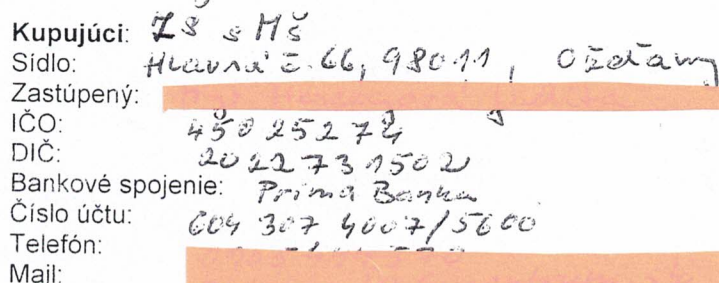 Kupujúci: ZŠ s MŠ
Sídlo: Hlavná č. 66, 980 11, Ožďany
Zastúpený:
IČO: 45025274
DIČ: 2022731502
Bankové spojenie: Prima Banka
Číslo účtu: 604 307 4007/5600
Telefón:
Mail: